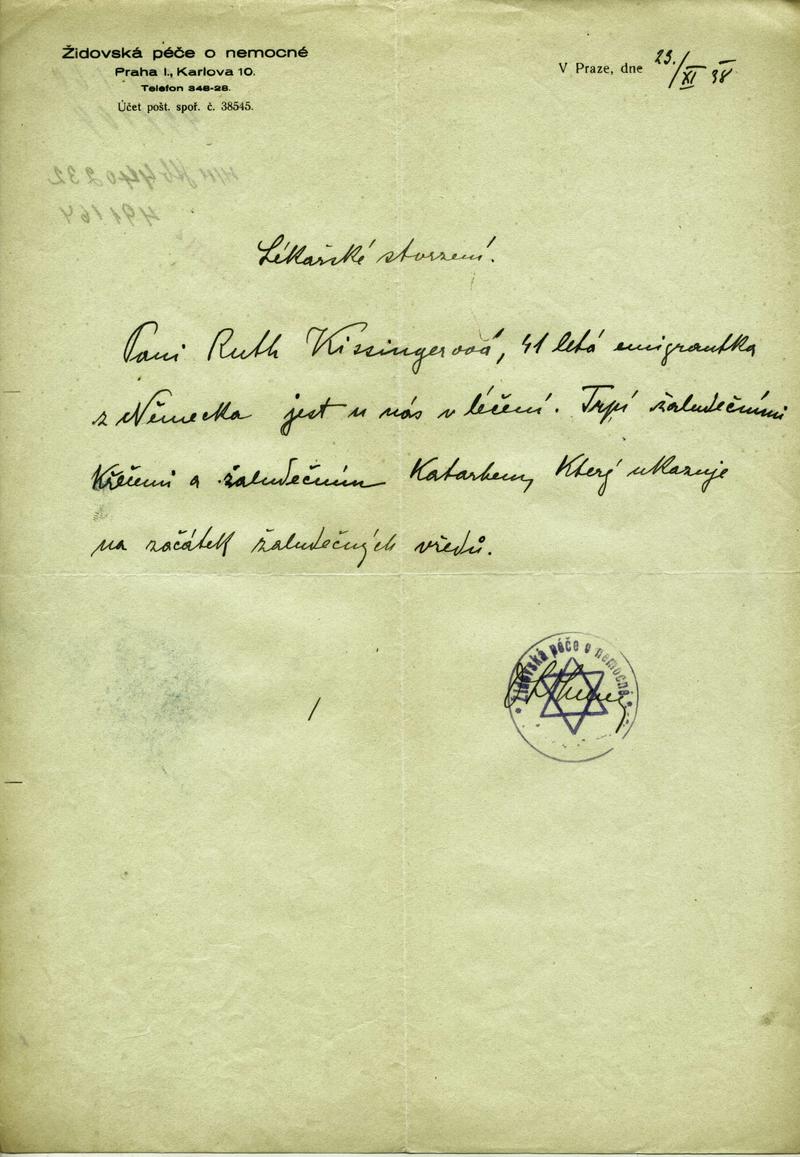 Židovská péče o nemocné
Praha I., Karlova 10.
Telefon 348-28.
Účet pošt. spoř. č. 38545.
V Praze, dne 23./XI 38
Lékařské stvrzení.
Paní Ruth Kissingerová, 41 letá emigrantka
z Německa jest u nás v léčení. Trpí žaludečními
křečemi a žaludečním katarhem, který ukazuje
na začátek žaludečných vředů.
Židovská péče o nemocné